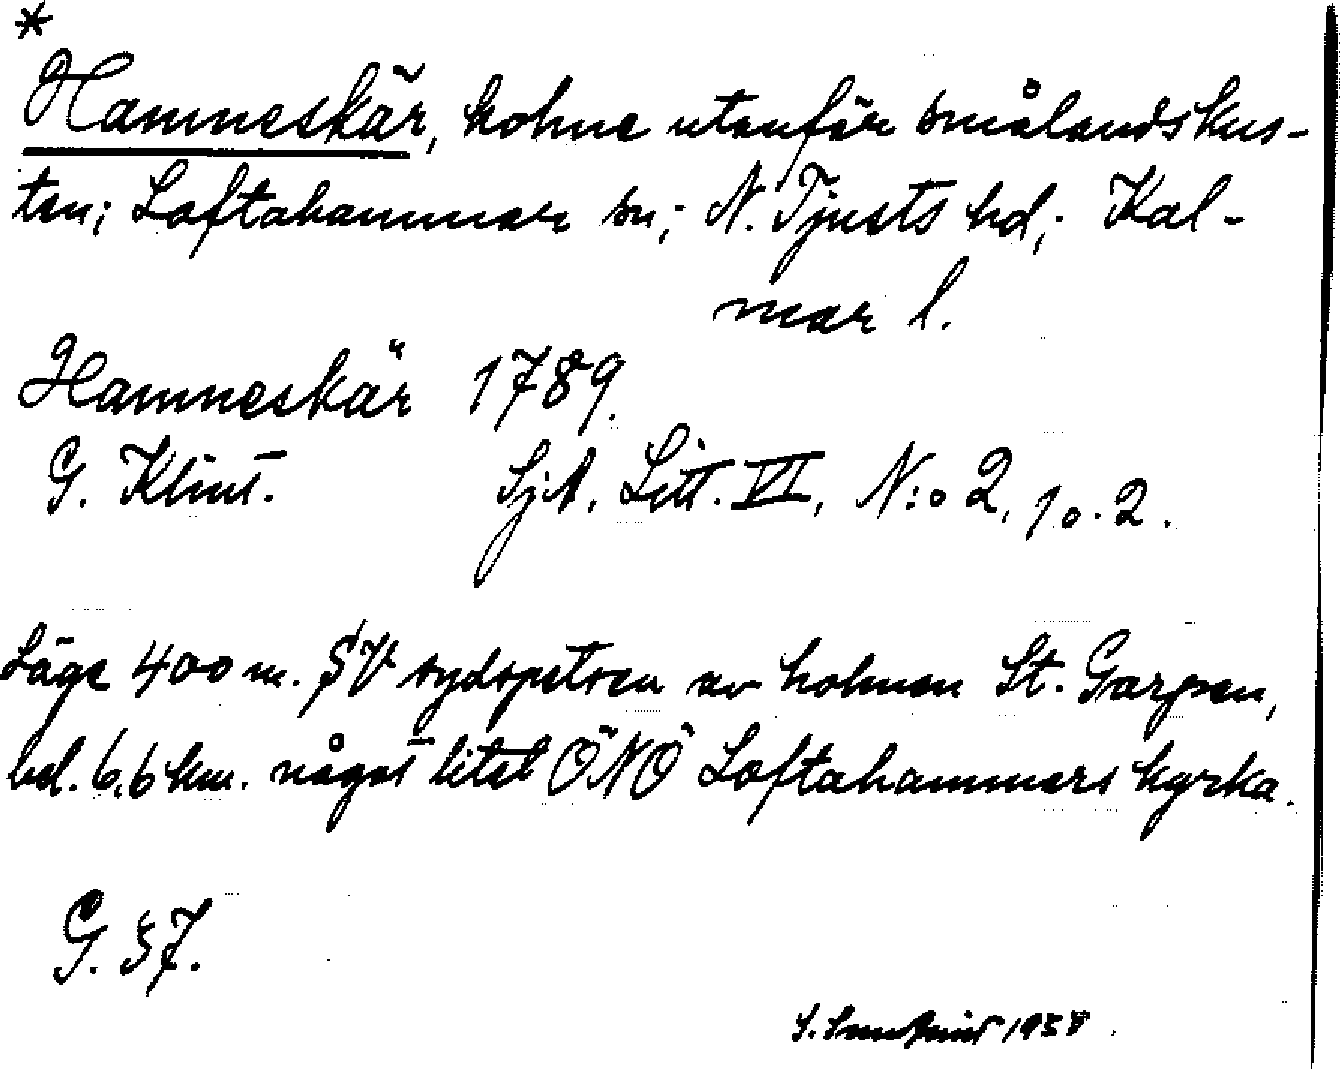 *
Hamneskär, holme utanför smålandskus-
ten; Loftahammar sn; N. Tjusts hd; Kal-
mar l.
Hamneskär 1789.
G. Klint. SjA. Litt. VI, N:o 2, 10.2.
Läge 400 m. SV sydspetsen av holmen St. Garpen,
bel. 6,6 km. något litet ÖNÖ Loftahammars kyrka.
G. 57.
1958